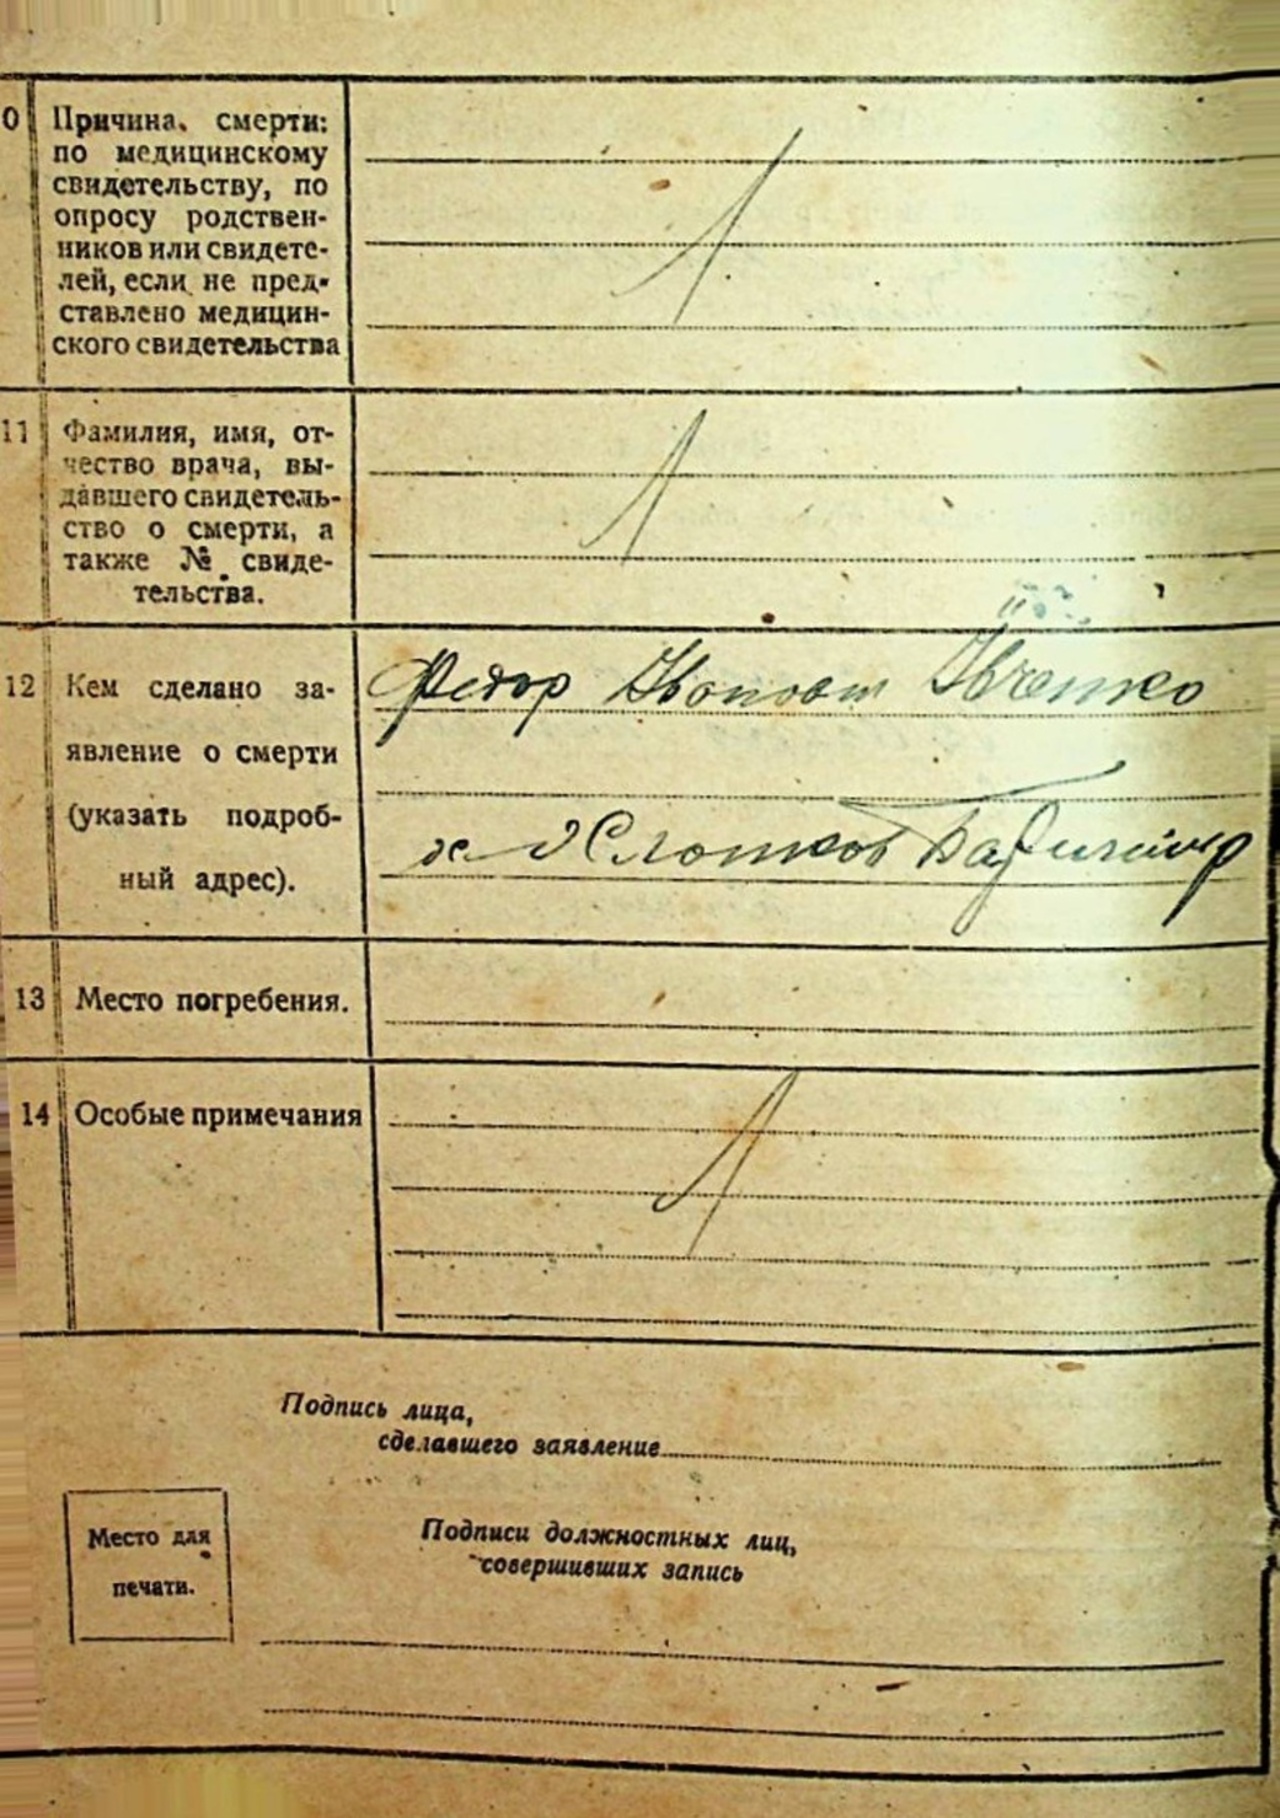 0 Причина. смерти:
по медицинскому
свидетельству, по
опросу родствен-
ников или свидете-
лей, если не пред-
ставлено медицин-
ского свидетельства
11 Фамилия, имя, от-
чество врача, вы-
давшего свидетель-
ство о смерти, а
также № свиде-
тельства.
12 Кем сделано за-
явление о смерти
(указать подроб-
ный адрес).
Федор Ивченко
13 Место погребения.
14 Особые примечания
Подпись лица,
сделавшего заявление
Место для
печати.
Подписи должностных лиц,
совершивших запись